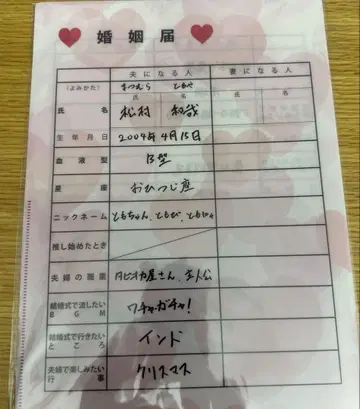 婚姻届
夫になる人 妻になる人
（よみかた） まつむら ともや
氏 名 氏 名
氏名 松村 和哉
生年月日 2004年4月15日
血液型 B型
星座 おひつじ座
ニックネーム ともちゃん、ともぴ、
推し始めたとき
夫婦の職業 タピオカ屋さん、主人公
結婚式で流したい
BGM ワチャガチャ！
結婚式で行きたい
ところ インド
夫婦で楽しみたい
行事 クリスマス